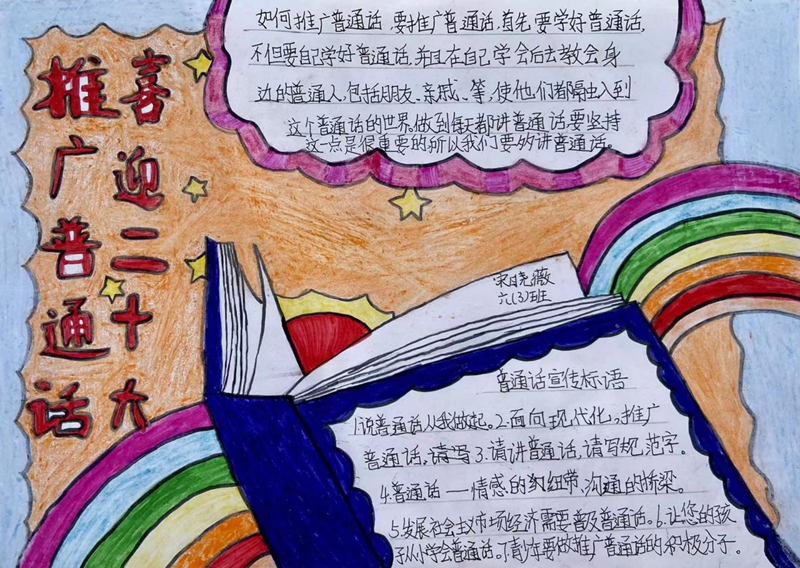 喜迎二十大
推广普通话
如何推广普通话,要推广普通话,首先要学好普通话,
不但要自己学好普通话,并且在自己学会后去教会身
边的普通人,包括朋友、亲戚、等,使他们都融入到
这个普通话的世界,做到每天都讲普通话要坚持
这一点是很重要的所以我们要的讲普通话。
宋晓薇
六(3)班
普通话宣传标语
1.说普通话从我做起。2.面向现代化,推广
普通话,请写3.请讲普通话,请写规范字。
4.普通话——情感的纽带,沟通的桥梁。
5.发展社会主义市场经济需要普及普通话。6.让您的孩
子从小学会普通话。7.青少年要做推广普通话的积极分子。